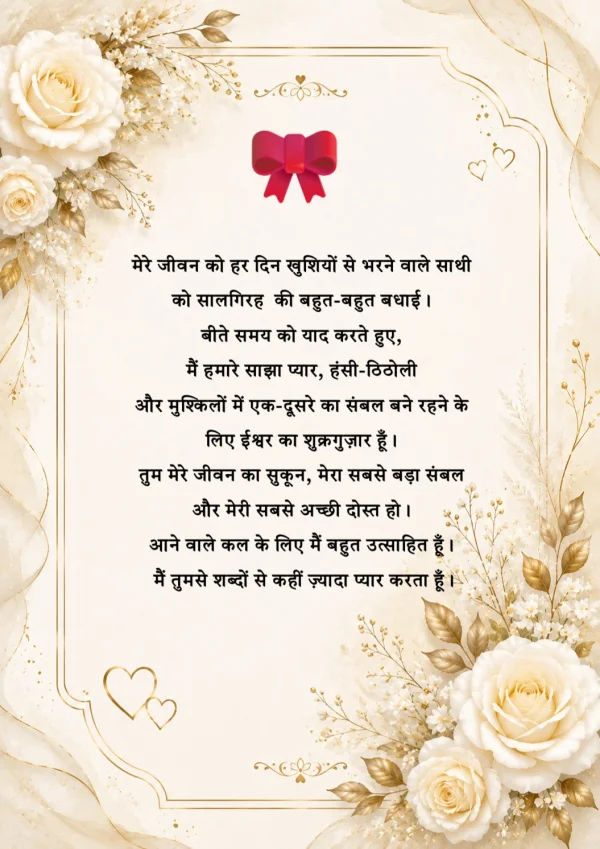 मेरे जीवन को हर दिन खुशियों से भरने वाले साथी
को सालगिरह की बहुत-बहुत बधाई।
बीते समय को याद करते हुए,
मैं हमारे साझा प्यार, हंसी-ठिठोली
और मुश्किलों में एक-दूसरे का संबल बने रहने के
लिए ईश्वर का शुक्रगुज़ार हूँ।
तुम मेरे जीवन का सुकून, मेरा सबसे बड़ा संबल
और मेरी सबसे अच्छी दोस्त हो।
आने वाले कल के लिए मैं बहुत उत्साहित हूँ।
मैं तुमसे शब्दों से कहीं ज़्यादा प्यार करता हूँ।